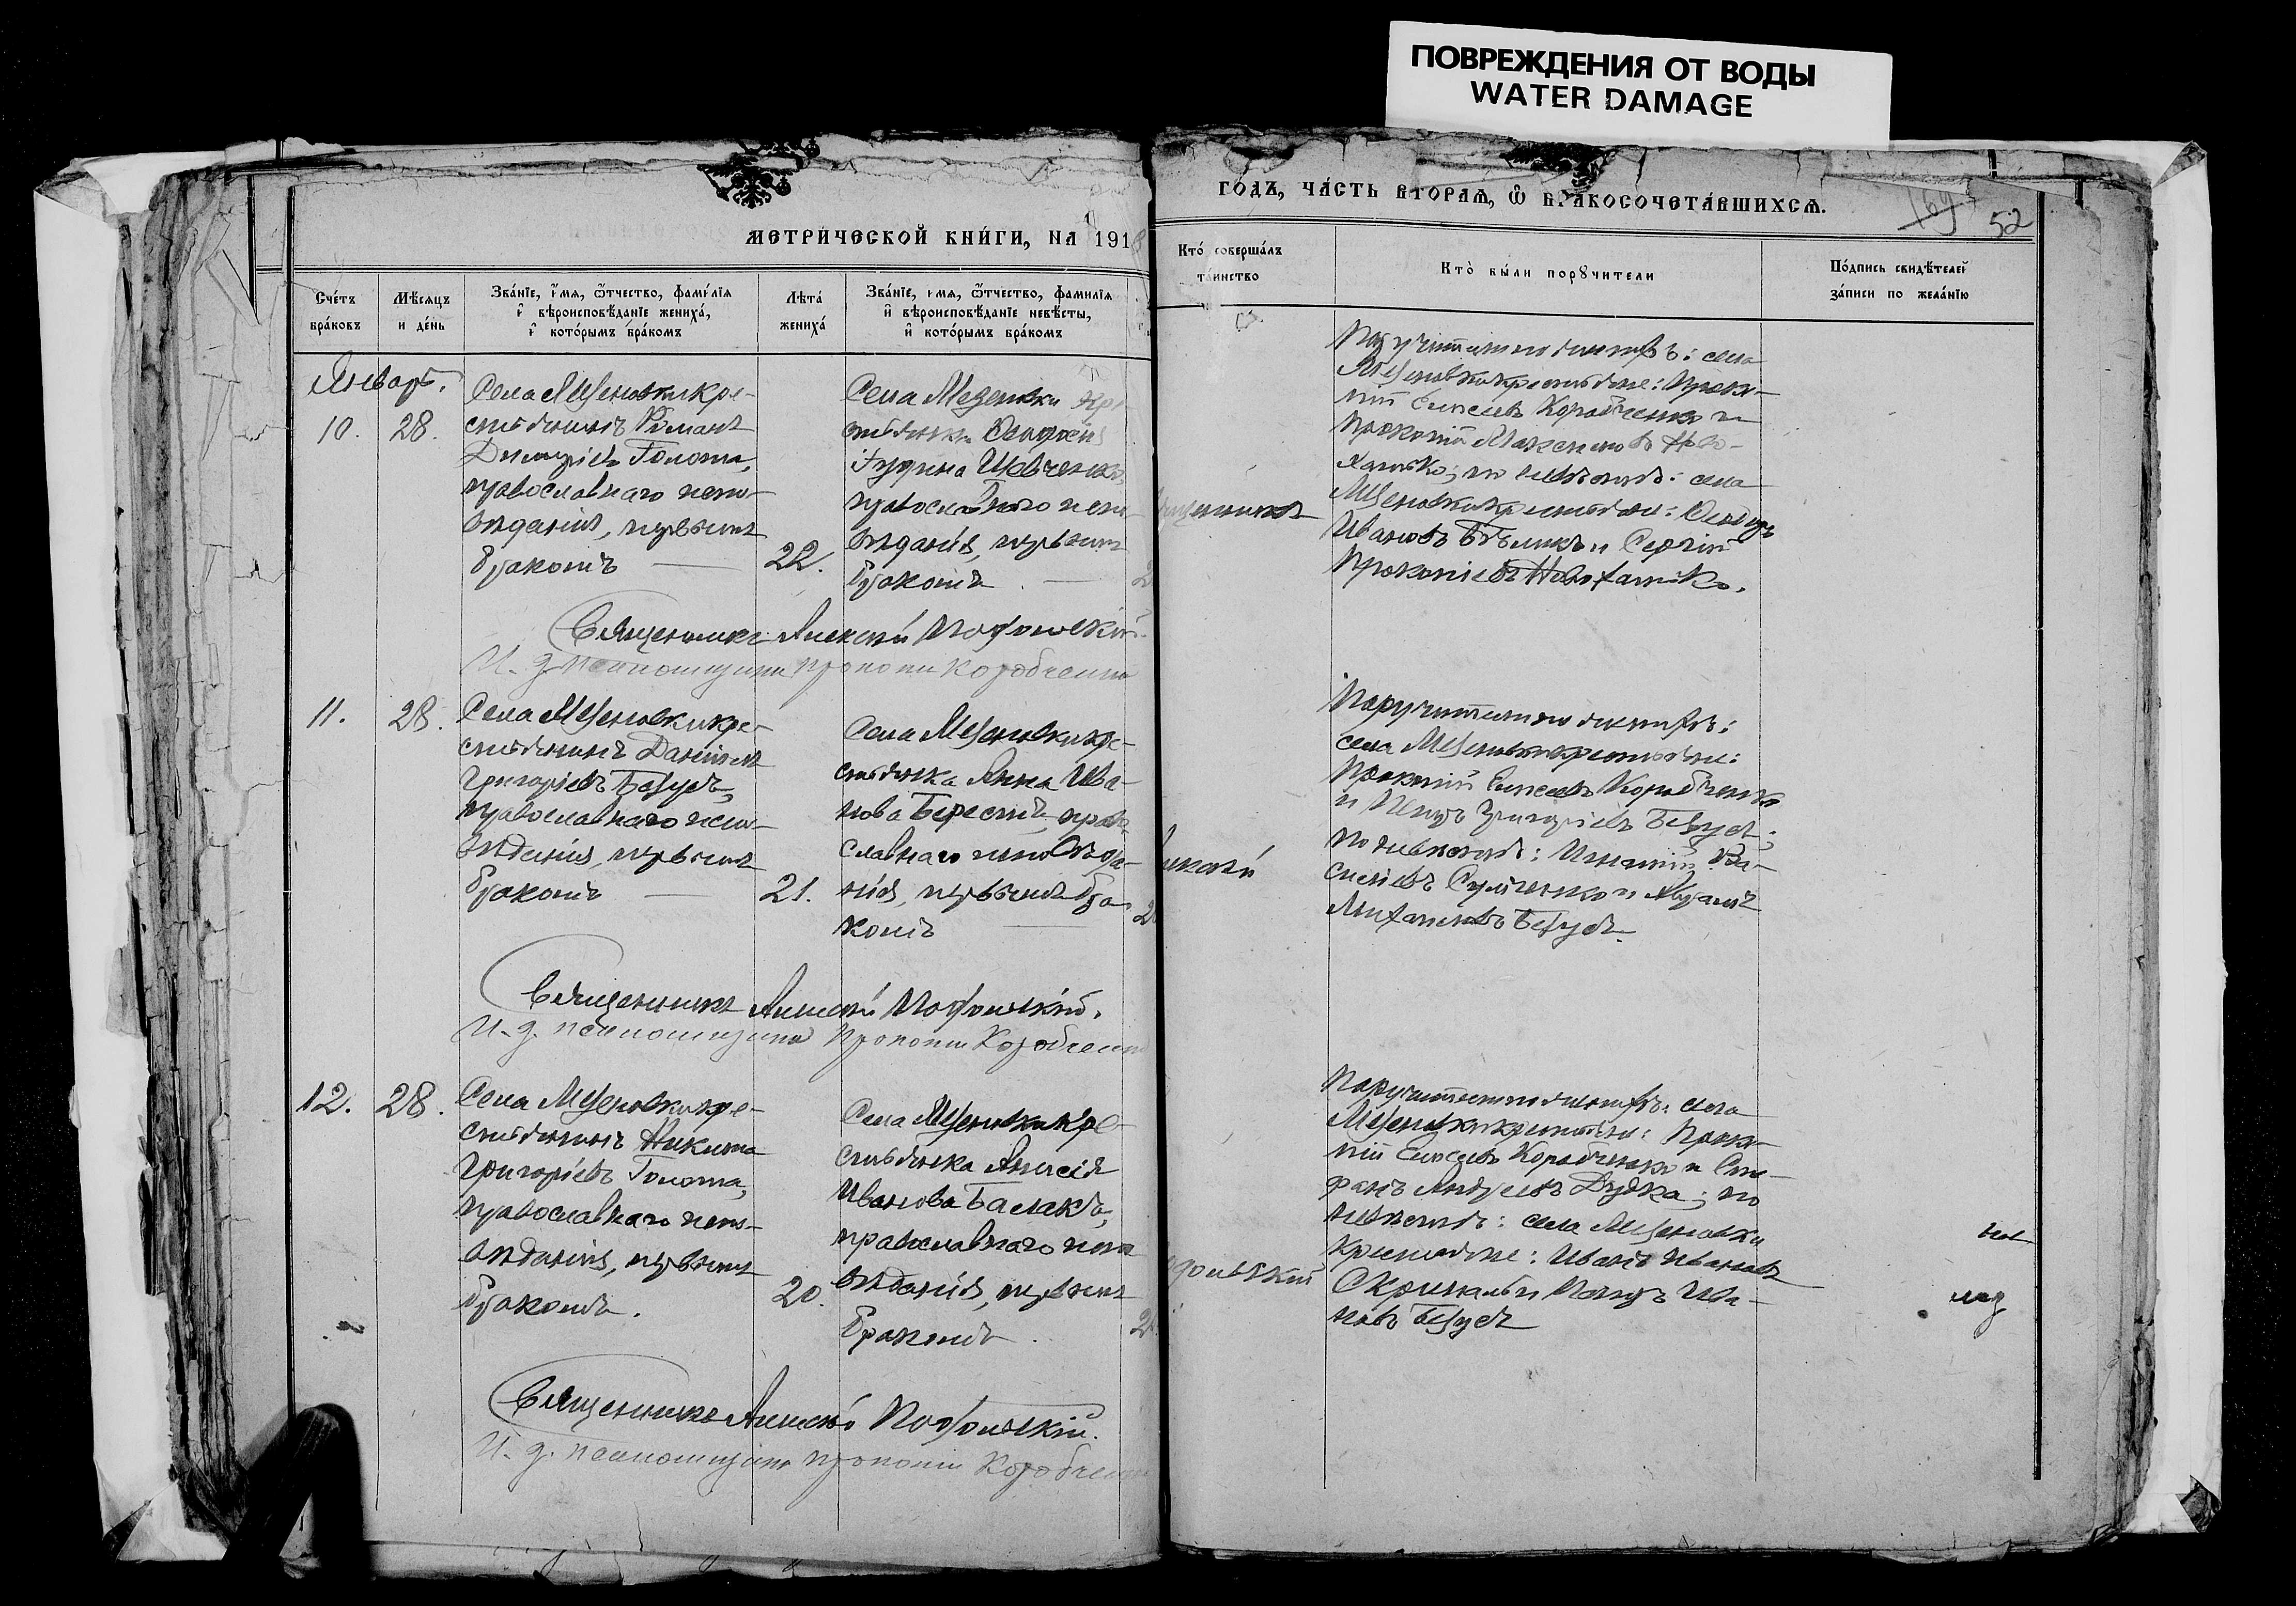 ПОВРЕЖДЕНИЯ ОТ ВОДЫ
WATER DAMAGE
МЕТРИЧЕСКОЙ КНИГИ, НА 191
ГОДЪ, ЧАСТЬ ВТОРАЯ, Ѿ БРАКОСОЧЕТАВШИХСЯ.
169
52
Счетъ браковъ
Мѣсяцъ и день
Званіе, имя, ѿтчество, фамилія
и вѣроисповѣданіе жениха,
и которымъ бракомъ
Лѣта жениха
Званіе, имя, ѿтчество, фамилія
и вѣроисповѣданіе невѣсты,
и которымъ бракомъ
Кто совершалъ таинство
Кто были порꙋчители
Подпись свидѣтелей
записи по желанію
Январь.
10.
28.
Села Мезеновки кре-
стьянинъ Романъ
Димитріевъ Голота,
православнаго испо-
вѣданія, первымъ
бракомъ
22.
Села Мезеновки кре-
стьянка
Шевченко,
православнаго испо-
вѣданія, первымъ
бракомъ
Священникъ
Поручители по женихѣ: села
Мезеновки крестьяне: Проко-
пій Елисеевъ Коробченко и
Прокопій Максимовъ Ново-
хатько; по невѣстѣ: села
Мезеновки крестьяне:
Ивановъ Бѣликъ и Сергій
Прокопіевъ Новохатько.
Священникъ Алексій
И. д. псаломщика Прокопій Коробченко
11.
28.
Села Мезеновки кре-
стьянинъ Даніилъ
Григоріевъ Безубъ,
православнаго испо-
вѣданія, первымъ
бракомъ
21.
Села Мезеновки кре-
стьянка Анна Ива-
нова Берестъ, право-
славнаго исповѣда-
нія, первымъ бра-
комъ
Поручители по женихѣ:
села Мезеновки крестьяне:
Прокопій Елисеевъ Коробченко
и Петръ Григоріевъ Безубъ;
по невѣстѣ: Игнатій Ва-
сильевъ Супруненко и Абрамъ
Михаиловъ Безубъ.
Священникъ Алексій
И. д. псаломщика Прокопій Коробченко
12.
28.
Села Мезеновки кре-
стьянинъ Никита
Григоріевъ Голота,
православнаго испо-
вѣданія, первымъ
бракомъ.
20.
Села Мезеновки кре-
стьянка Анисія
Иванова Балакъ,
православнаго испо
вѣданія, первымъ
бракомъ
Поручители по женихѣ: села
Мезеновки крестьяне: Проко-
пій Елисеевъ Коробченко и Сте-
фанъ Андреевъ Дудка; по
невѣстѣ: села Мезеновки
крестьяне: Иванъ Ивановъ
и Петръ Ива-
новъ Безубъ
Священникъ Алексій
И. д. псаломщика Прокопій Коробченко